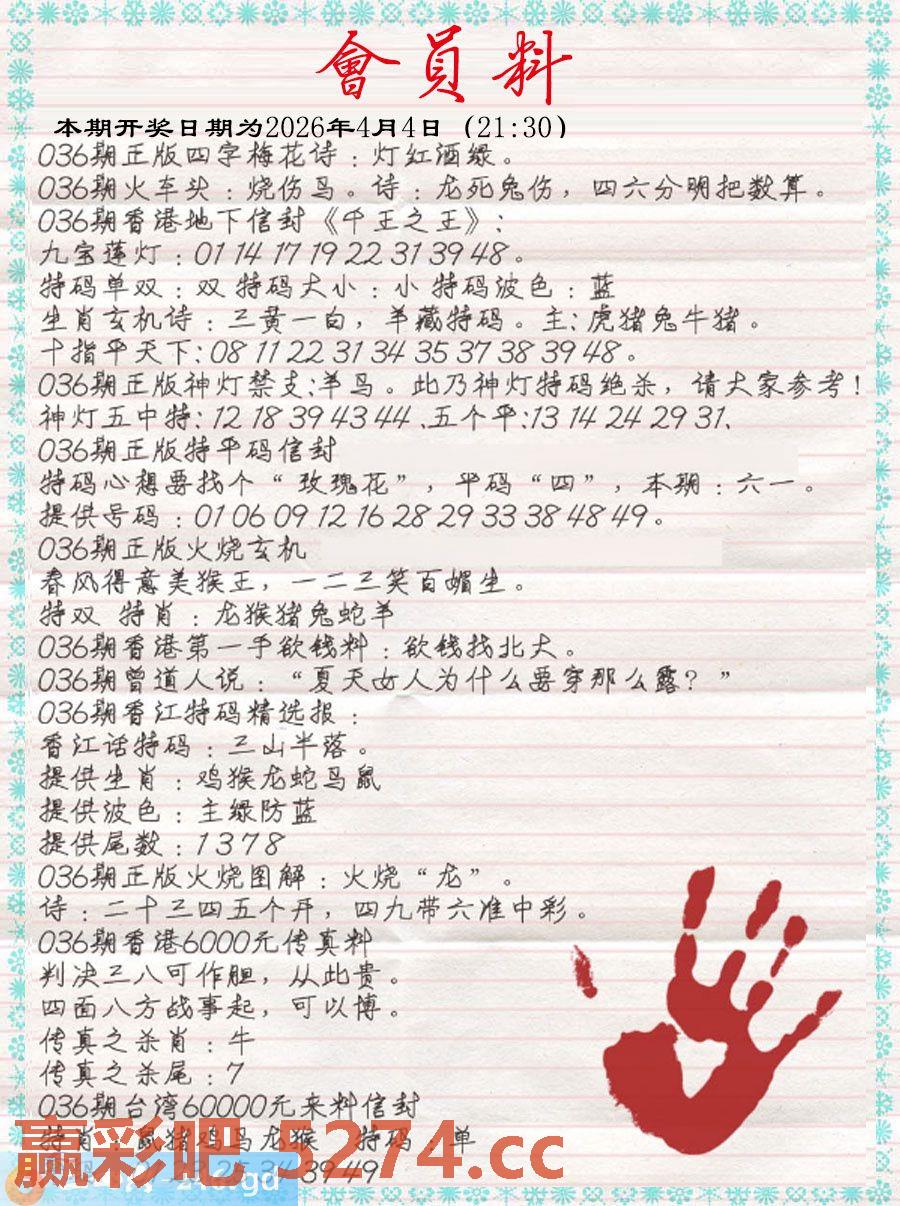 會員料
本期开奖日期为2026年4月4日（21:30）
036期正版四字梅花诗：灯红酒绿。
036期火车头：烧伤鸟。诗：龙死兔伤，四六分明把数算。
036期香港地下信封《千王之王》：
九宝莲灯：01 14 17 19 22 31 39 48。
特码单双：双 特码大小：小 特码波色：蓝
生肖玄机诗：三黄一白，羊藏特码。主：虎猪兔牛猪。
十指平天下：08 11 22 31 34 35 37 38 39 48。
036期正版神灯禁支：羊鸟。此乃神灯特码绝杀，请大家参考！
神灯五中特：12 18 39 43 44 .五个平：13 14 24 29 31、
036期正版特平码信封
特码心想要找个“玫瑰花”，平码“四”，本期：六一。
提供号码：01 06 09 12 16 28 29 33 38 48 49。
036期正版火烧玄机
春风得意美猴王，一二三笑百媚生。
特双 特肖：龙猴猪兔蛇羊
036期香港第一手欲钱料：欲钱找北大。
036期曾道人说：“夏天女人为什么要穿那么露？”
036期香江特码精选报：
香江话特码：三山半落。
提供生肖：鸡猴龙蛇马鼠
提供波色：主绿防蓝
提供尾数：1 3 7 8
036期正版火烧图解：火烧“龙”。
诗：二十三四五个开，四九带六准中彩。
036期香港6000元传真料
判决三八可作胆，从此贵。
四面八方战事起，可以博。
传真之杀肖：牛
传真之杀尾：7
036期台湾60000元来料信封
特肖：鼠猪鸡马龙猴 特码：单
赢彩吧.5274.cc
25 34 39 49